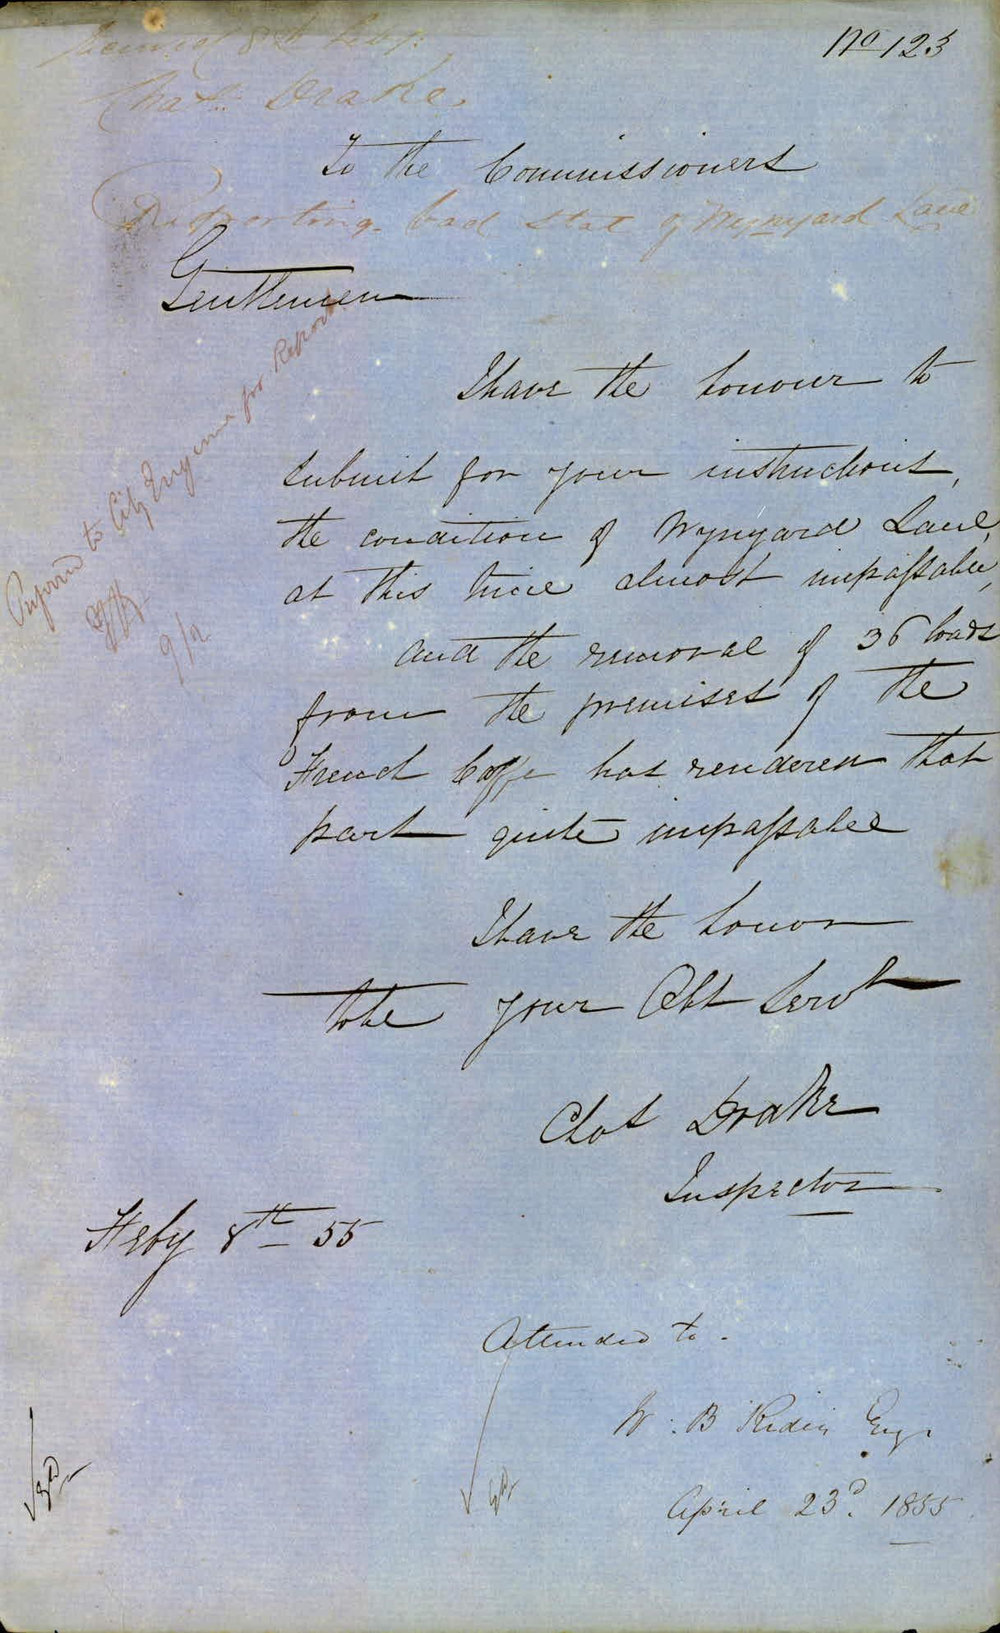 No 123
8th Feby.
Chas. Drake.
To the Commissioners
Reporting bad state of Wynyard Lane
Gentlemen
I have the honour to
submit for your instructions,
the condition of Wynyard Lane,
at this time almost impassable,
and the removal of 36 loads
from the premises of the
French Caffe has rendered that
part quite impassable
I have the honor
to be your Obt Servt
Chas Drake
Inspector
Feby 8th 55
Referred to City Engineer for Report
9/2
Attended to.
W. B Rider Engr
April 23d. 1855